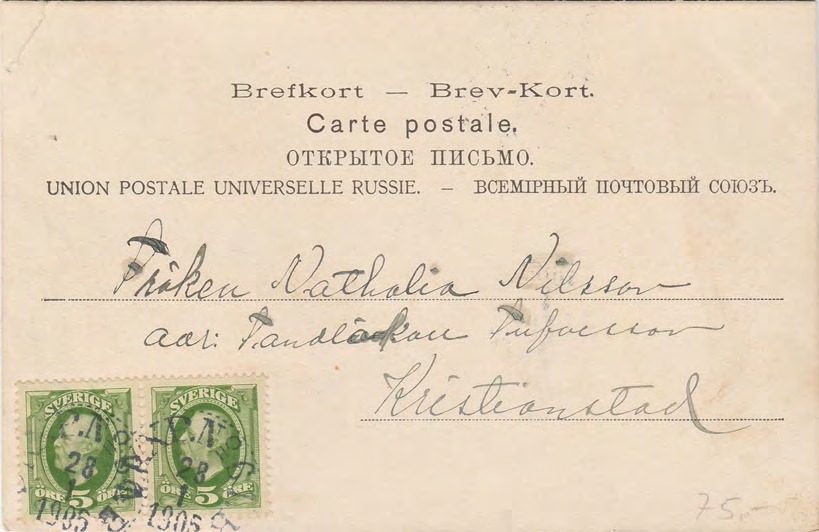 Brefkort — Brev-Kort.
Carte postale.
ОТКРЫТОЕ ПИСЬМО.
UNION POSTALE UNIVERSELLE RUSSIE. – ВСЕМІРНЫЙ ПОЧТОВЫЙ СОЮЗЪ.
Fröken Nathalia Nilsson
adr: Tandläkare Tufvesson
Kristianstad
SVERIGE SVERIGE
C.A C.A
28 28
1 1
ÖRE 5 ÖRE ÖRE 5 ÖRE
1905 1905
75.-